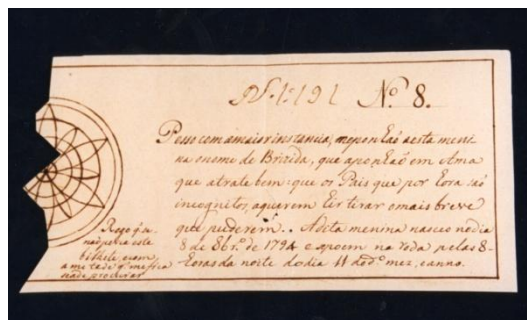 Nº 8.
Pesso com a maior instancia, me ponhaõ a esta meni-
na o nome de Brizida, que a ponhaõ em Ama
que a trate bem: que os Pais que por hora saõ
incognitos, a querem hir tirar o mais breve
que puderem. A dita menina nasceo no dia
8 de 8br.º de 1794 e a poem na roda pelas 8-
horas da noite do dia 11 do dº mez, e anno.
Rogo q. se
naõ perca este
bilhete, e com
a metade q. me fica
se ade procurar